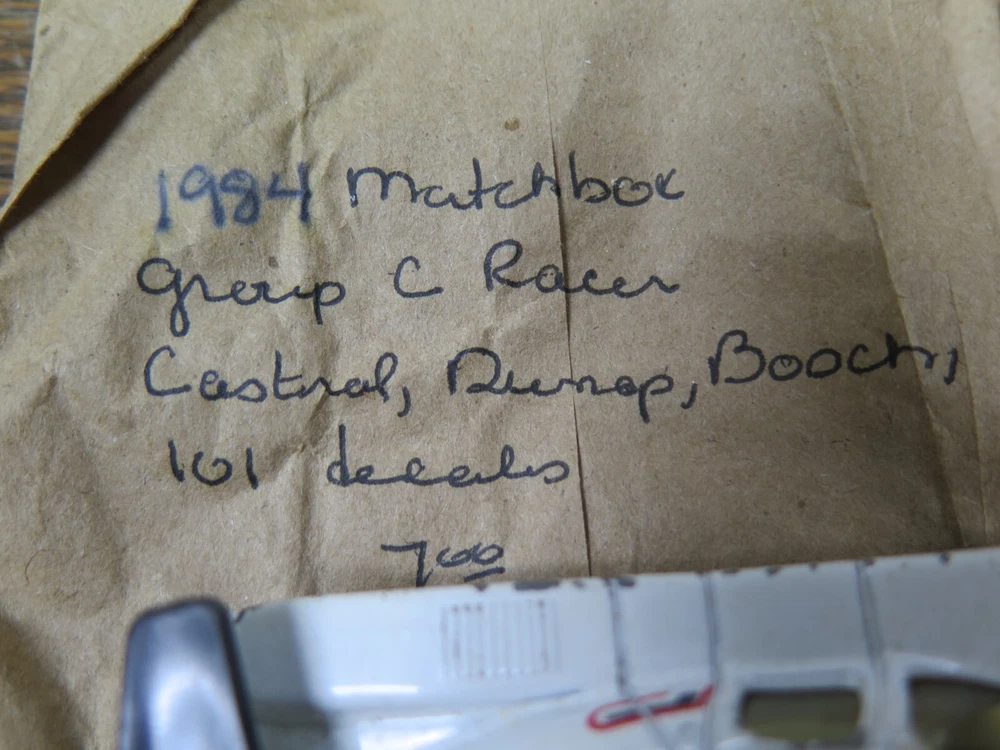 1984 Matchbox
Group C Racer
Castrol, Dunop, Booch,
101 decals
7.00